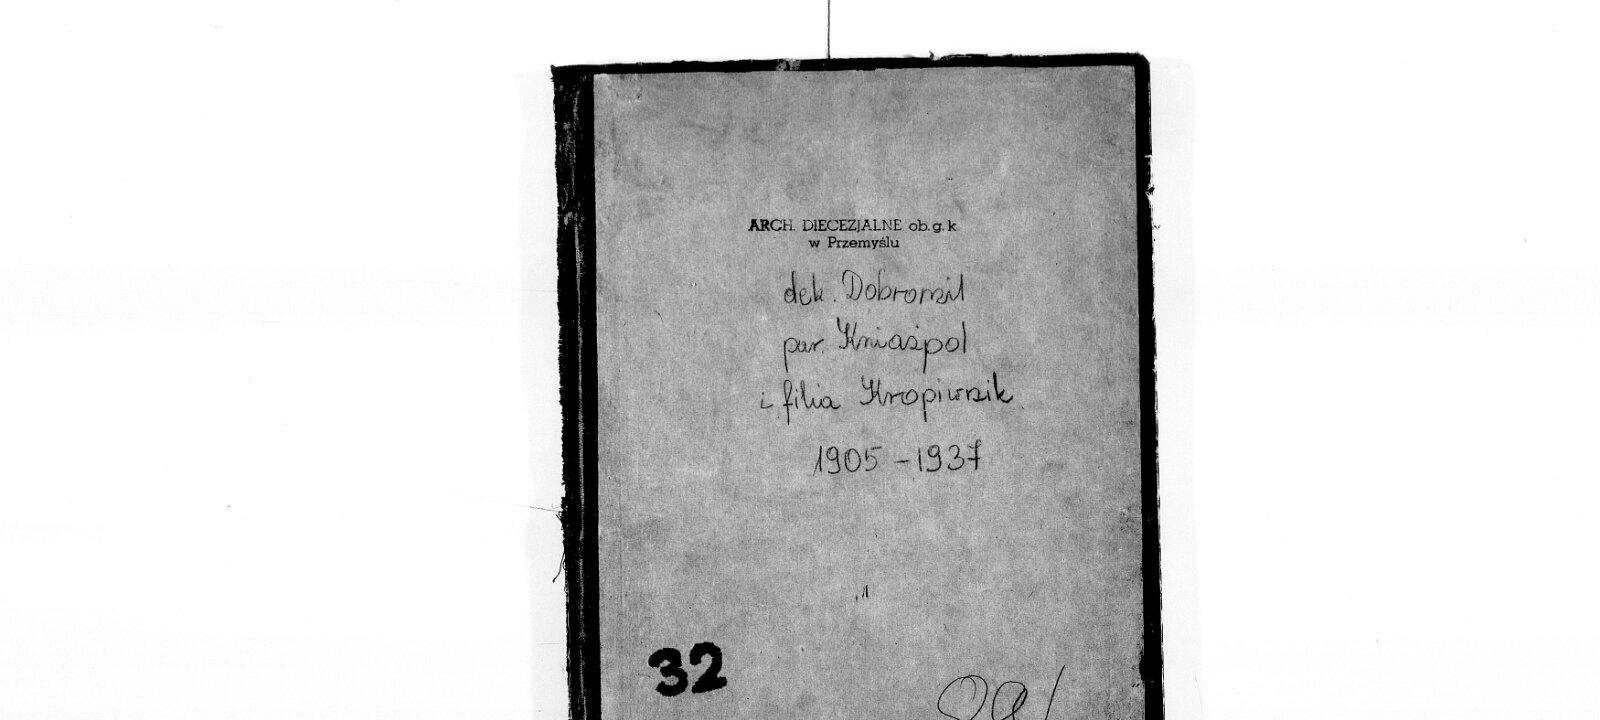 ARCH. DIECEZJALNE ob. g. k
w Przemyślu
dek. Dobromil
par. Kniaźpol
i filia Kropiwnik
1905 - 1937
32